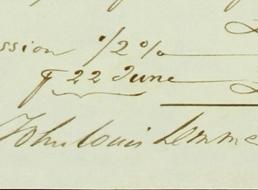 ssion ½ %
22 June
John Louis Lemme